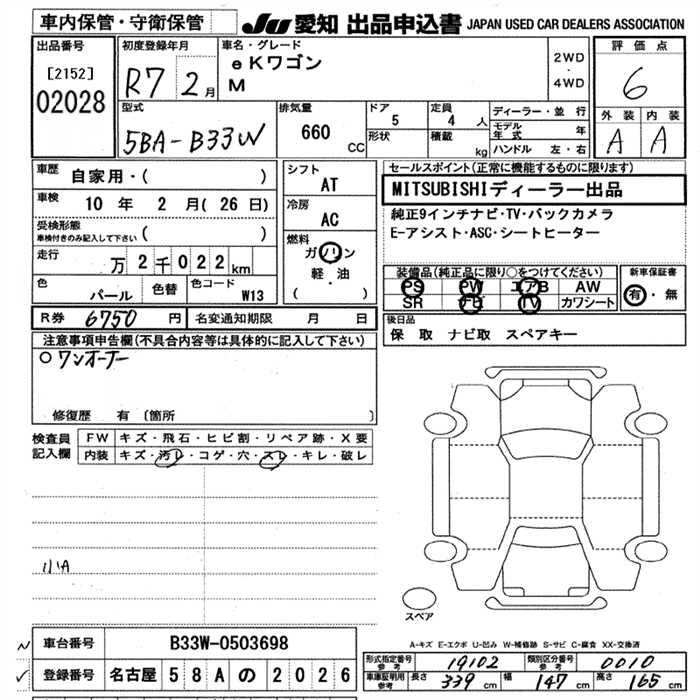 車内保管・守衛保管
JU 愛知 出品申込書 JAPAN USED CAR DEALERS ASSOCIATION
出品番号
[2152]
02028
初度登録年月
R7 2月
車名・グレード
eKワゴン
M
2WD
・
4WD
評価点
6
外装 内装
A A
型式
5BA-B33W
排気量
660 CC
ドア
5
形状
定員
4 人
積載
kg
ディーラー・並行
モデル年式 年
ハンドル 左・右
車歴 自家用・( )
車検 10年 2月(26日)
受検形態
車検付きのみ記入して下さい ( )
走行 万2千022km
色 パール 色替 色コード W13
シフト
AT
冷房
AC
燃料
ガソリン
軽・油
( )
セールスポイント(正常に機能するものに限ります)
MITSUBISHIディーラー出品
純正9インチナビ・TV・バックカメラ
E-アシスト・ASC・シートヒーター
装備品(純正品に限り○をつけてください)
PS PW エアB AW
SR TV カワシート
新車保証書
有・無
R券 6750円 名変通知期限 月 日
後日品
保 取 ナビ取 スペアキー
注意事項申告欄(不具合内容等は具体的に記入して下さい)
○ワンオーナー
修復歴 有〔箇所 〕
検査員記入欄
FW キズ・飛石・ヒビ割・リペア跡・X要
内装 キズ・汚レ・コゲ・穴・スレ・キレ・破レ
小A
スペア
A-キズ E-エクボ U-凹み W-補修跡 S-サビ C-腐食 XX-交換済
車台番号 B33W-0503698
登録番号 名古屋 58Aの2026
形式指定番号参考 19102 類別区分番号参考 0010
車庫証明用参考 長さ 339cm 幅 147cm 高さ 165cm